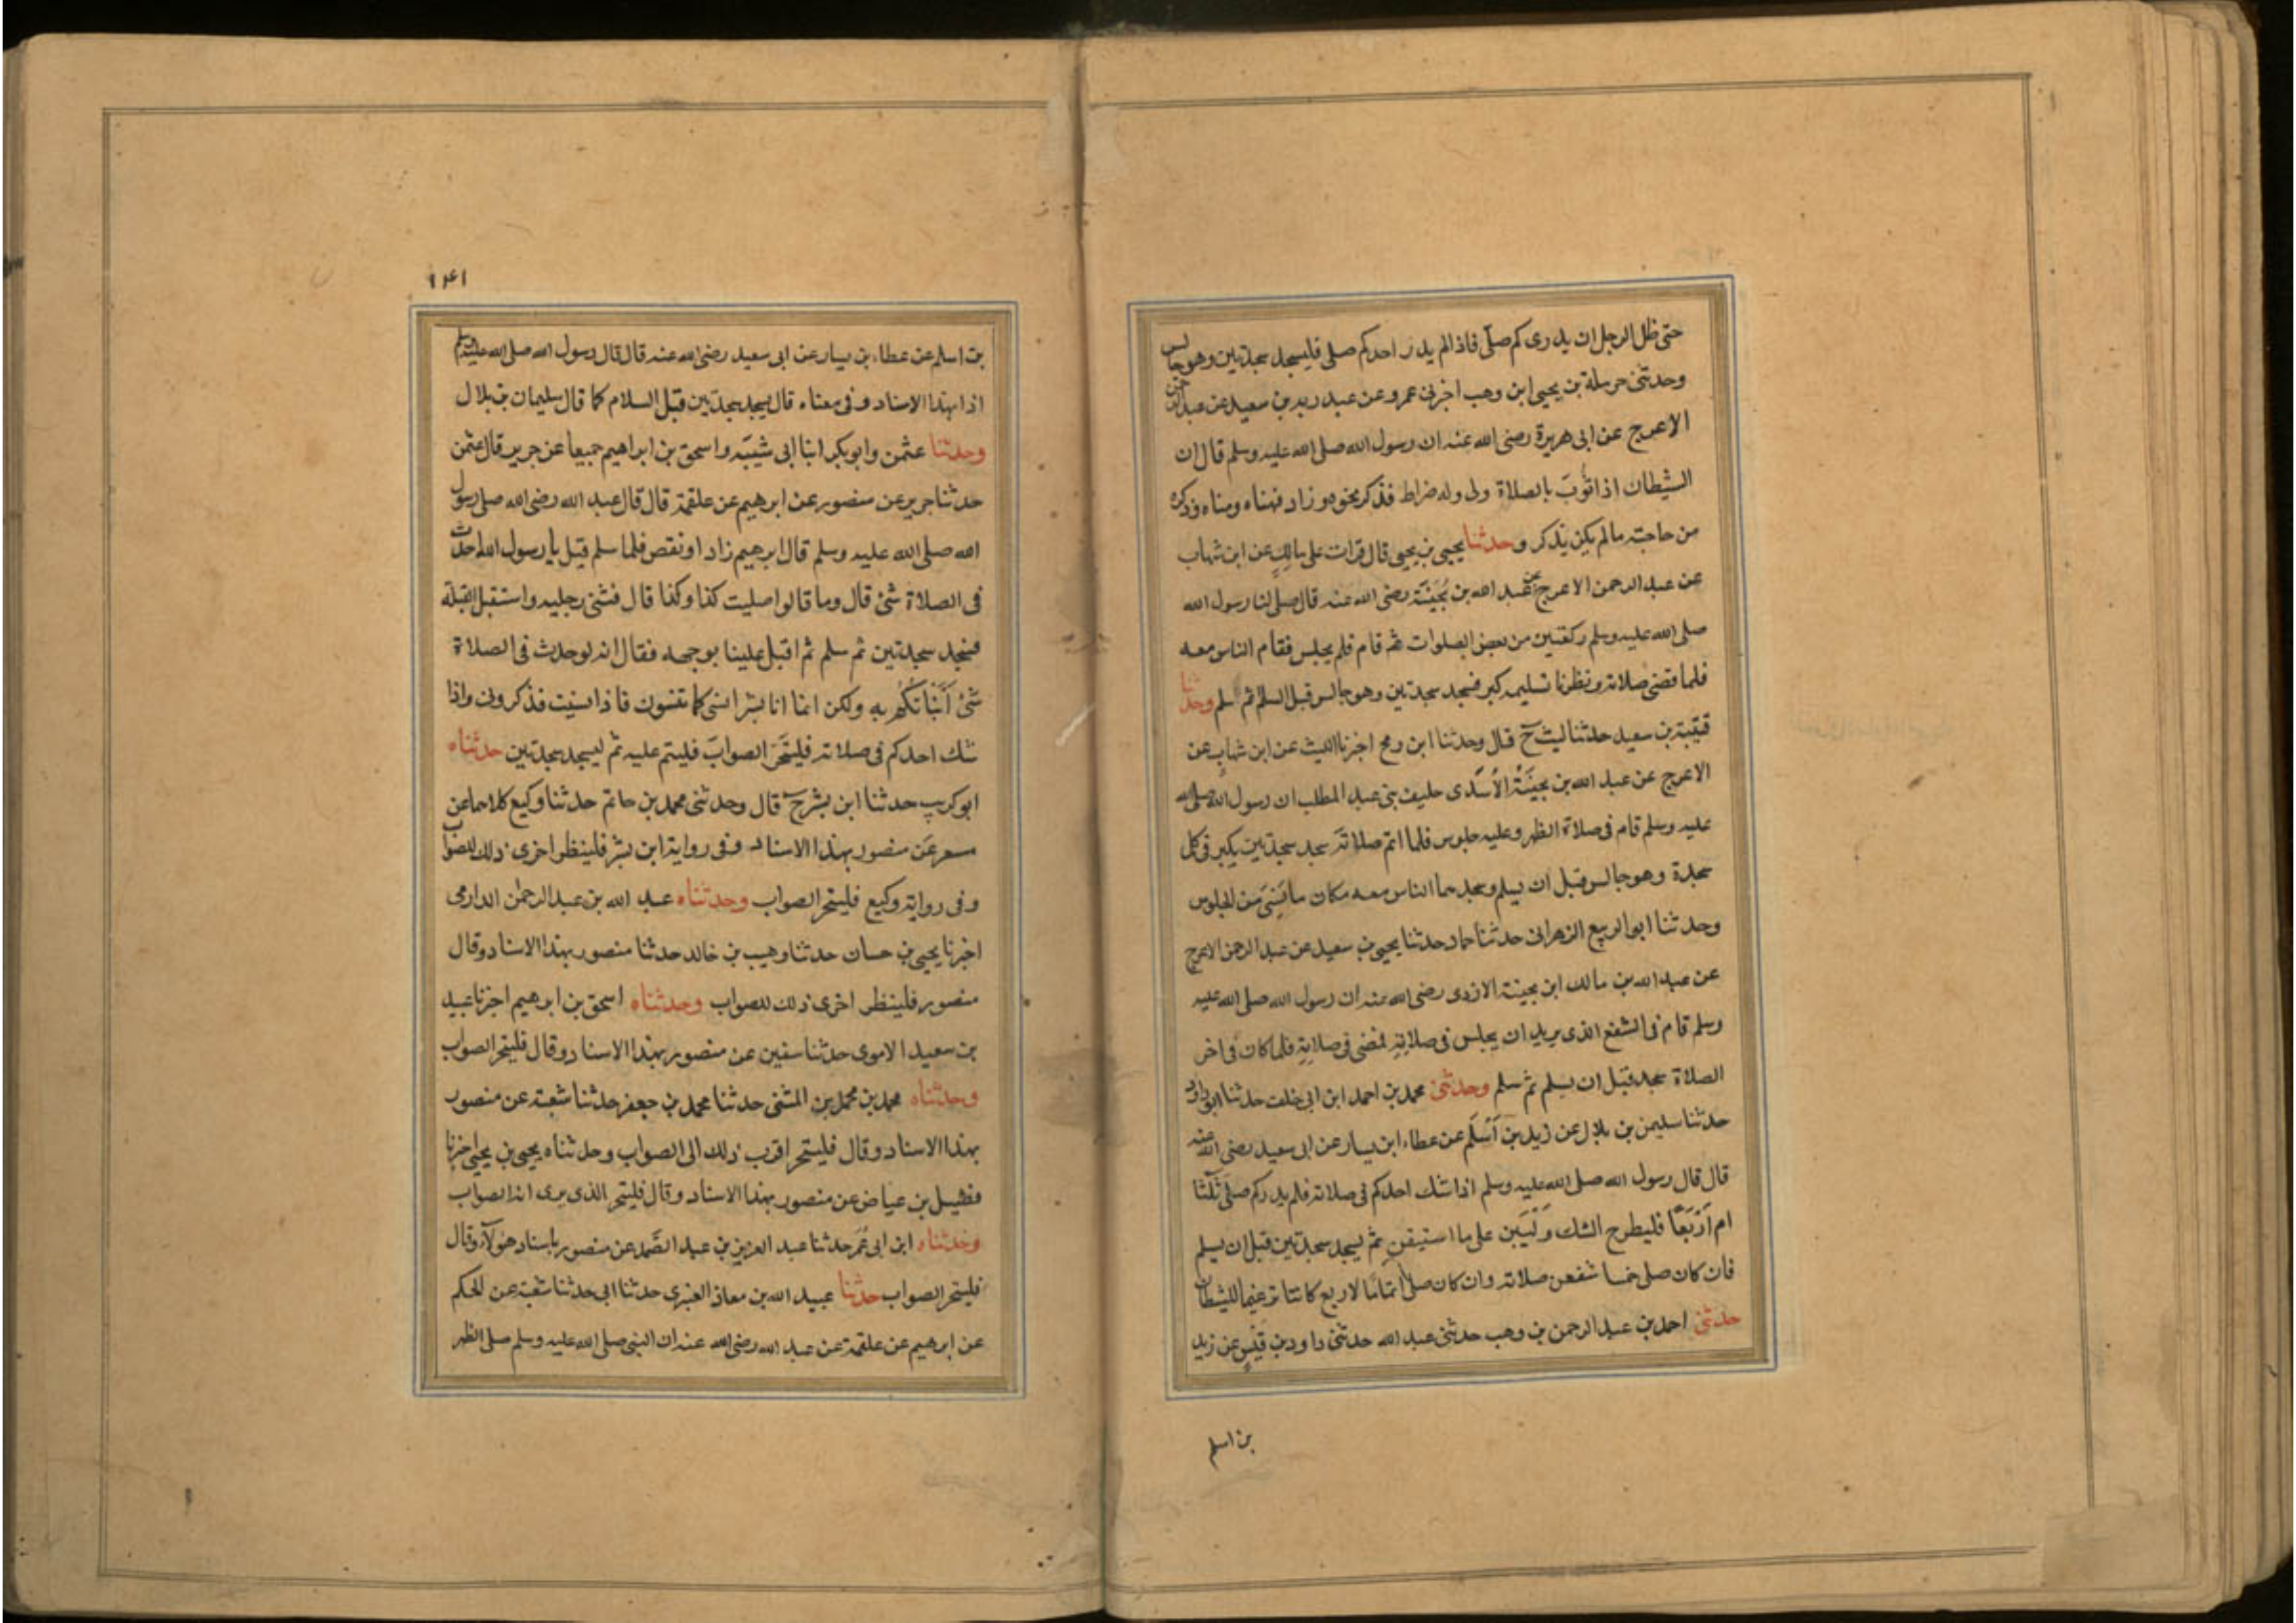 حتى ظل الرجل ان يدرى كم صلى فاذا لم يدر احدكم صلى فليسجد سجدتين وهو جالس
وحدثنى حرملة بن يحيى ابن وهب اخبرنى عمرو عن عبد ربه بن سعيد عن عبد الرحمن
الاعرج عن ابى هريرة رضى الله عنه ان رسول الله صلى الله عليه وسلم قال ان
الشيطان اذا ثُوّبَ بالصلاة ولى وله ضراط فذكر نحوه وزاد فهناه ومناه وذكره
من حاجته ما لم يكن يذكر وحدثنا يحيى بن يحيى قال قرات على مالكٍ عن ابن شهاب
عن عبد الرحمن الاعرج عن عبد الله بن بُحَيْنَة رضى الله عنه قال صلى لنا رسول الله
صلى الله عليه وسلم ركعتين من بعض الصلوات ثم قام فلم يجلس فقام الناس معه
فلما قضى صلاته ونظرنا تسليمه كبر فسجد سجدتين وهو جالس قبل السلم ثم سلم وحدثنا
قتيبة بن سعيد حدثنا ليث ح قال وحدثنا ابن رمح اخبرنا الليث عن ابن شهابٍ عن
الاعرج عن عبد الله بن بحَيْنَةَ الأَسْدى حليف بنى عبد المطلب ان رسول الله صلى الله
عليه وسلم قام فى صلاة الظهر وعليه جلوس فلما اتم صلاتَه سجد سجدتين يكبر فى كل
سجدة وهو جالس قبل ان يسلم وسجدهما الناس معه مكان ما نَسِىَ مَن الجلوس
وحدثنا ابو الربيع الزهرانى حدثنا حماد حدثنا يحيى بن سعيد عن عبد الرحمن الاعرج
عن عبد الله بن مالك ابن بحينة الازدى رضى الله عنه ان رسول الله صلى الله عليه
وسلم قام فى الشفع الذى يريد ان يجلس فى صلاتِهِ فمضى فى صلاتِهِ فلما كان فى اخر
الصلاة سجد قبل ان يسلم ثم سلم وحدثنى محمد بن احمد ابن ابى خلف حدثنا ابو داود
حدثنا سليمن بن بلال عن زيد بن أَسْلَم عن عطاء ابن يسار عن ابى سعيد رضى الله عنه
قال قال رسول الله صلى الله عليه وسلم اذا شك احدكم فى صلاته فلم يدر كم صلى ثلثا
ام أَرْبَعًا فليطرح الشك وَلْيَبْن على ما استيقن ثم يسجد سجدتين قبل ان يسلم
فان كان صلى خمسا شفعن صلاته وان كان صلى اتمامًا لاربع كانتا ترغيما للشيطان
حدثنى احمد بن عبد الرحمن بن وهب حدثنى عبد الله حدثنى داود بن قيسٍ عن زيد
بن اسلم
١٤١
بن اسلم عن عطاء بن يسار عن ابى سعيد رضى الله عنه قال قال رسول الله صلى الله عليه وسلم
اذا بهذا الاسناد وفى معناه قال يسجد سجدتين قبل السلام كما قال سليمان بن بلال
وحدثنا عثمن وابو بكر ابنا ابى شيبَه واسحق بن ابراهيم جميعا عن جرير قال عثمن
حدثنا جرير عن منصور عن ابرهيم عن علقمة قال قال عبد الله رضى الله صلى رسول
الله صلى الله عليه وسلم قال ابرهيم زاد او نقص فلما سلم قيل يا رسول الله احدث
فى الصلاة شئ قال وما قالوا صليت كذا وكذا قال فثنى رجليه واستقبل القبلة
فسجد سجدتين ثم سلم ثم اقبل علينا بوجهه فقال انه لو حدث فى الصلاة
شئ أَنْبَأتكُمُ بِهِ ولكن انما انا بشر انسى كما تنسون فاذا نسيت فذكرونى واذا
شك احدكم فى صلاته فليتَحَرَ الصوابَ فليتم عليه ثم ليسجد سجدتين حدثناه
ابو كريب حدثنا ابن بشر ح قال وحدثنى محمد بن حاتم حدثنا وكيع كلاهما عن
مسعر عَن منصور بهذا الاسناد وفى رواية ابن بشر فلينظر احرى ذلك للصواب
وفى رواية وكيع فليتحر الصواب وحدثناه عبد الله بن عبد الرحمن الدارمى
اخبرنا يحيى بن حسان حدثنا وهيب بن خالد حدثنا منصور بهذا الاسناد وقال
منصور فلينظر احرى ذلك للصواب وحدثناه اسحق بن ابرهيم اخبرنا عبيد
بن سعيد الاموى حدثنا سفين عن منصور بهذا الاسناد وقال فليتحر الصواب
وحدثناه محمد بن محمد بن المثنى حدثنا محمد بن جعفر حدثنا شعبة عن منصور
بهذا الاسناد وقال فليتحر اقرب ذلك الى الصواب وحدثناه يحيى بن يحيى اخبرنا
فضيل بن عياض عن منصور بهذا الاسناد وقال فليتحر الذى يرى انه الصواب
وحدثناه ابن ابى عُمَر حدثنا عبد العزيز بن عبد الصَّمد عن منصور باسناد هولآء وقال
فليتحر الصواب حدثنا عبيد الله بن معاذ العنبرى حدثنا ابى حدثنا شعبة عن الحكم
عن ابرهيم عن علقمة عن عبد الله رضى الله عنه ان النبى صلى الله عليه وسلم صلى الظهر